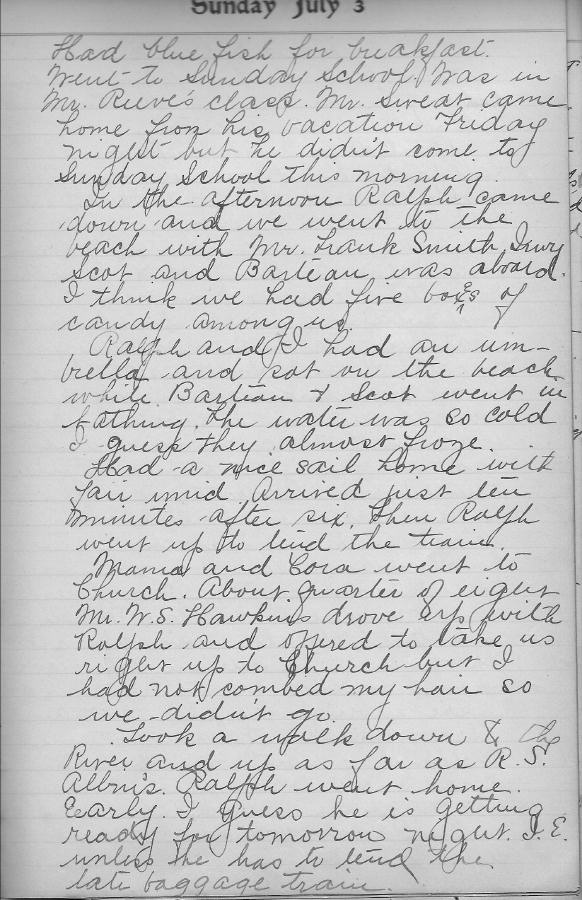 Sunday July 3
Had blue fish for breakfast.
Went to Sunday School. Was in
Mr. Reeve's class. Mr. Sweat came
home from his vacation Friday
night but he didn't come to
Sunday School this morning.
In the afternoon Ralph came
down and we went to the
beach with Mr. Frank Smith, Irwy
Scot and Barteau was aboard.
I think we had five boxes of
candy among us.
Ralph and I had an um-
brella and sat on the beach
while Barteau & Scot went in
bathing. The water was so cold
I guess they almost froze.
Had a nice sail home with
fair wind. Arrived just ten
minutes after six. Then Ralph
went up to tend the train.
Mama and Cora went to
Church. About quarter of eight
Mr. W.S. Hawkins drove up with
Ralph and offered to take us
right up to Church but I
had not combed my hair so
we didn't go.
Took a walk down to the
River and up as far as R. S.
Ralph went home
Early. I guess he is getting
ready for tomorrow night. I.E.
unless he has to tend the
late baggage train.